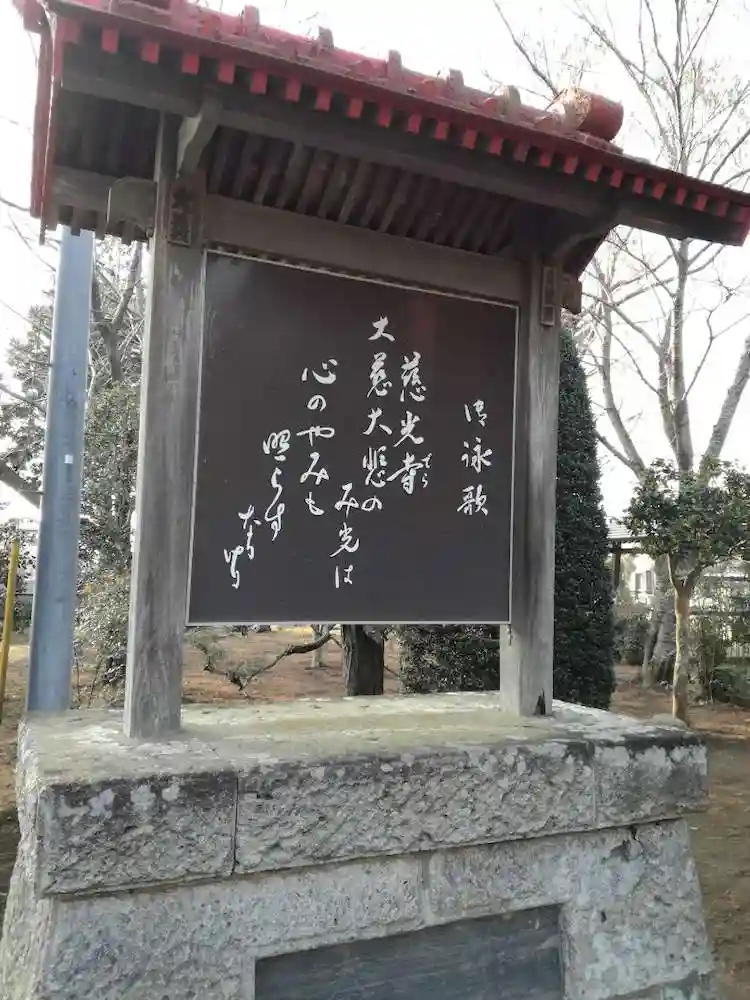 御詠歌
慈光寺
でら
大慈大悲の
み光は
心のやみも
照らす
なり